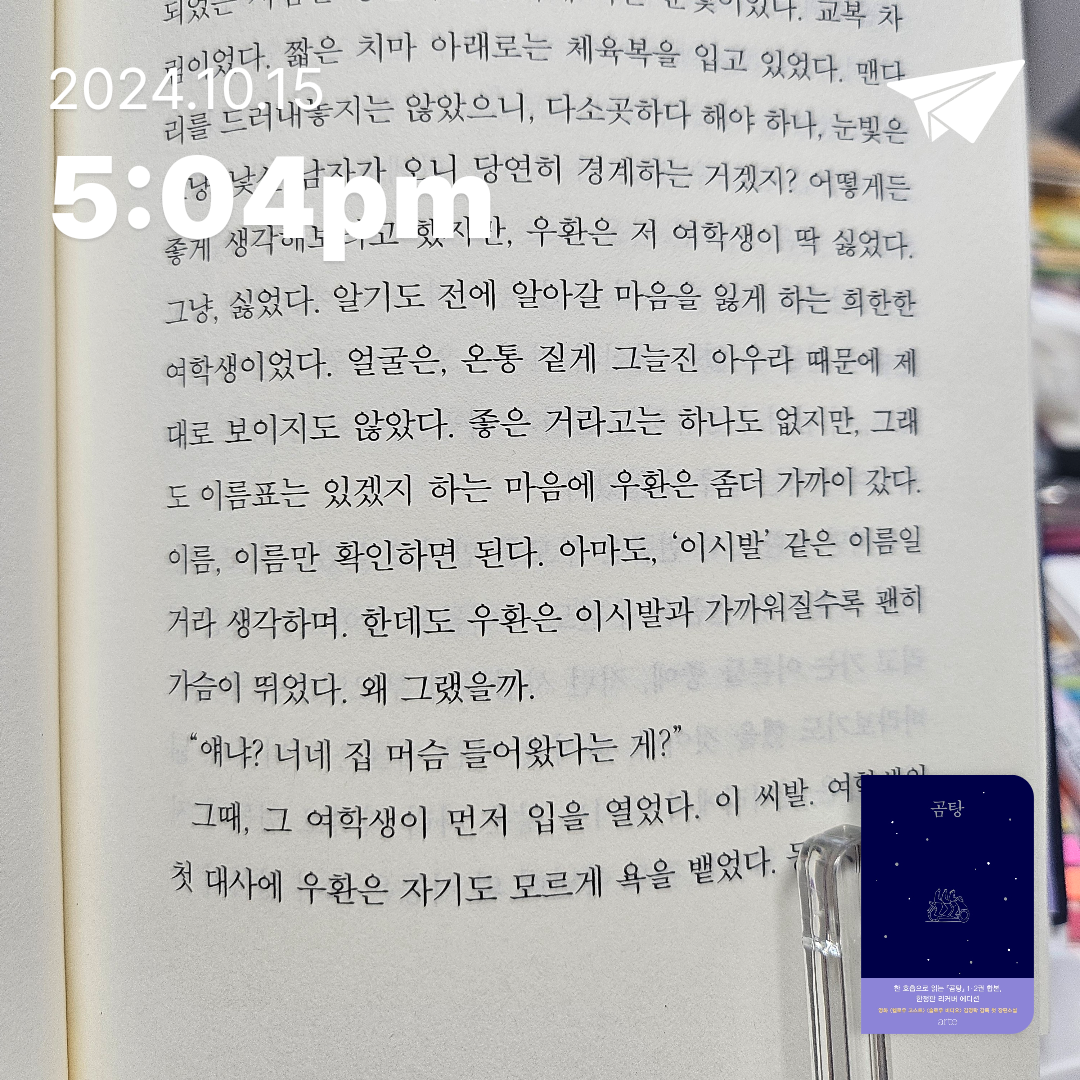 2024.10.15
5:04pm
교복 차
림이었다. 짧은 치마 아래로는 체육복을 입고 있었다. 맨다
리를 드러내놓지는 않았으니, 다소곳하다 해야 하나, 눈빛은
남자가 오니 당연히 경계하는 거겠지? 어떻게든
좋게 생각해보려고 했지만, 우환은 저 여학생이 딱 싫었다.
그냥, 싫었다. 알기도 전에 알아갈 마음을 잃게 하는 희한한
여학생이었다. 얼굴은, 온통 짙게 그늘진 아우라 때문에 제
대로 보이지도 않았다. 좋은 거라고는 하나도 없지만, 그래
도 이름표는 있겠지 하는 마음에 우환은 좀더 가까이 갔다.
이름, 이름만 확인하면 된다. 아마도, ‘이시발’ 같은 이름일
거라 생각하며. 한데도 우환은 이시발과 가까워질수록 괜히
가슴이 뛰었다. 왜 그랬을까.
“얘냐? 너네 집 머슴 들어왔다는 게?”
그때, 그 여학생이 먼저 입을 열었다. 이 씨발. 여학생의
첫 대사에 우환은 자기도 모르게 욕을 뱉었다.
곰탕
한 호흡으로 읽는 『곰탕』 1·2권 합본,
한정판 리커버 에디션
arte